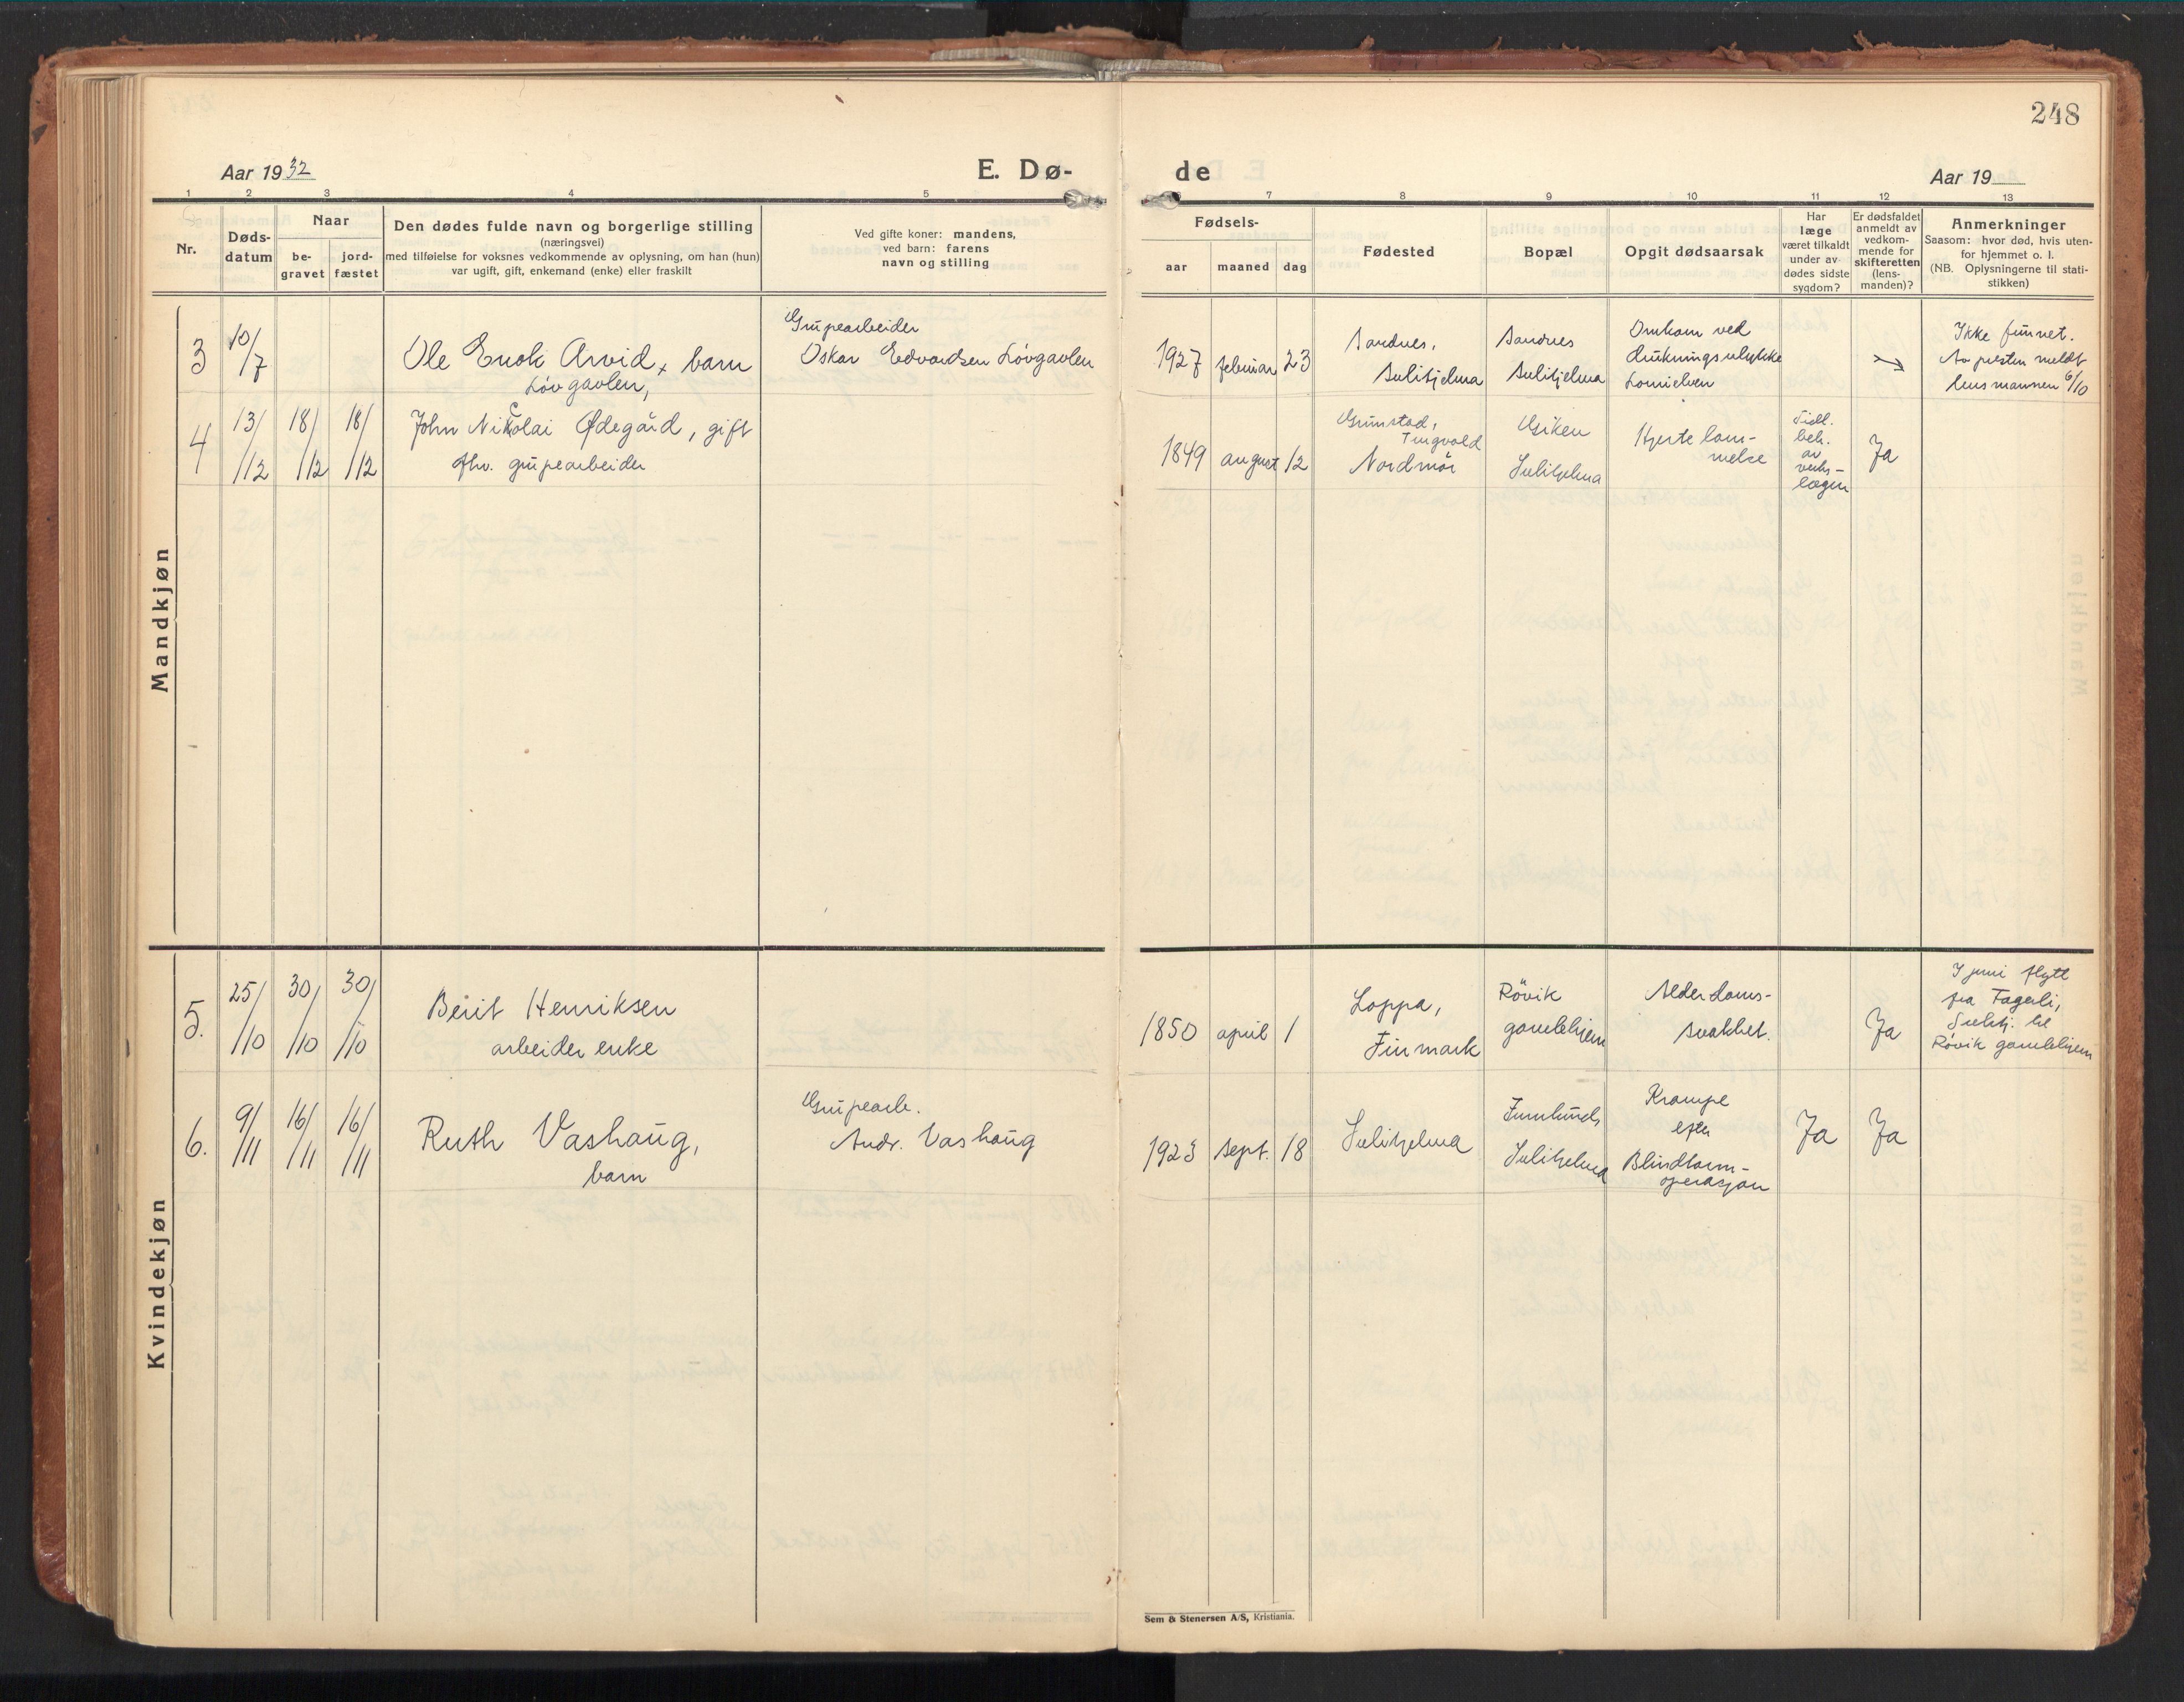 248
Aar 1932
E. Dø-
de
Aar 19
1 2 3 4 5 7 8 9 10 11 12 13
Nr.
Døds-
datum
Naar
be-
gravet
jord-
fæstet
Den dødes fulde navn og borgerlige stilling
(næringsvei)
med tilføielse for voksnes vedkommende av oplysning, om han (hun)
var ugift, gift, enkemand (enke) eller fraskilt
Ved gifte koner: mandens,
ved barn: farens
navn og stilling
Fødsels-
aar maaned dag
Fødested
Bopæl
Opgit dødsaarsak
Har
læge
været tilkaldt
under av-
dødes sidste
sygdom?
Er dødsfaldet
anmeldt av
vedkom-
mende for
skifteretten
(lens-
manden)?
Anmerkninger
Saasom: hvor død, hvis uten-
for hjemmet o. l.
(NB. Oplysningerne til stati-
stikken)
Mandkjøn
3
10/7
Ole Enok Arvid, barn
Lövgavlen,
Grupearbeider
Oskar Edvardsen Lövgavlen
1927 februar 23
Sandnes,
Sulitjelma
Sandnes
Sulitjelma
Omkom ved
drukningsulykke
Lomielven
Ikke funnet.
Av presten meldt
lensmannen 6/10
4
13/12 18/12 18/12
John Nikolai Ødegård, gift
fhv. grupearbeider
1849 august 12
Grimstad,
Tingvold
Nordmör
Giken
Sulitjelma
Hjertelam-
melse
Tidl.
beh.
av
verks-
lægen
Ja
Kvindekjøn
5.
25/10 30/10 30/10
Berit Henriksen
arbeider enke
1850 april 1
Loppa,
Finmark
Rövik
gamlehjem
Alderdoms-
svakhet.
Ja
I juni flytt
fra Fagerli,
Sulitj. til
Rövik gamlehjem
6.
9/11 16/11 16/11
Ruth Vashaug,
barn
Grupearb.
Andr. Vashaug
1923 sept. 18
Sulitjelma
Furulund,
Sulitjelma
Krampe
efter
Blindtarm-
operasjon
Ja
Ja
Sem & Stenersen A/S, Kristiania.